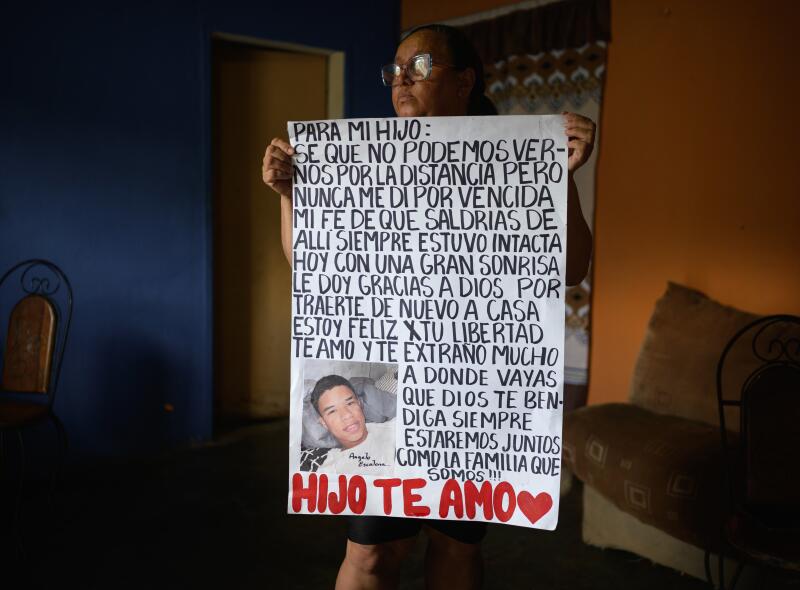 PARA MI HIJO:
SE QUE NO PODEMOS VER-
NOS POR LA DISTANCIA PERO
NUNCA ME DI POR VENCIDA
MI FE DE QUE SALDRIAS DE
ALLÍ SIEMPRE ESTUVO INTACTA
HOY CON UNA GRAN SONRISA
LE DOY GRACIAS A DIOS POR
TRAERTE DE NUEVO A CASA
ESTOY FELIZ X TU LIBERTAD
TE AMO Y TE EXTRAÑO MUCHO
A DONDE VAYAS
QUE DIOS TE BEN-
DIGA SIEMPRE
ESTAREMOS JUNTOS
COMO LA FAMILIA QUE
SOMOS!!!
Angelo
Escalona
HIJO TE AMO